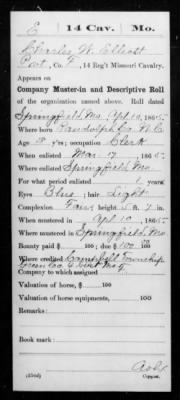 E 14 Cav. Mo.
Charles W. Elliott
Pvt, Co. F, 14 Reg't Missouri Cavalry.
Appears on
Company Muster-in and Descriptive Roll
of the organization named above. Roll dated
Springfield, Mo. Apl 10, 1865.
Where born Randolph Co N.C.
Age years; occupation Clerk
When enlisted Mar 17, 1865.
Where enlisted Springfield Mo.
For what period enlisted years.
Eyes Blue; hair Light
Complexion Fair; height 5 ft. 7 in.
When mustered in Apl 10, 1865.
Where mustered in Springfield, Mo.
Bounty paid $ 100; due $ 100
Where credited Campbell Township
Greene Co. Mo
Company to which assigned
Valuation of horse, $ 100
Valuation of horse equipments, 100
Remarks:
Book mark:
(356d) Copyist.